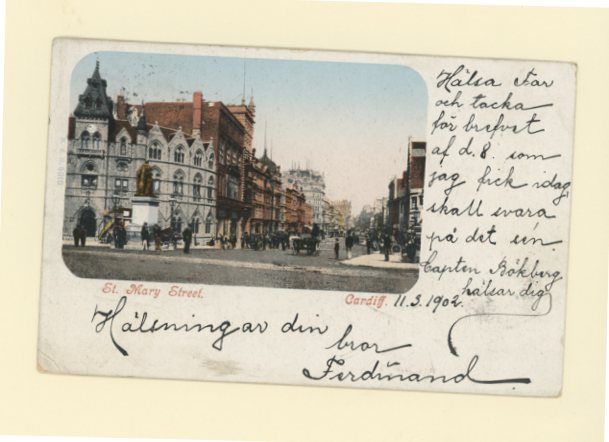 Hälsa Far
och tacka
för brefvet
af d. 8. som
jag fick idag,
skall svara
på det sen.
Capten Bökberg
hälsar dig
St. Mary Street.
Cardiff. 11.3.1902.
Hälsningar din
bror
Ferdinand